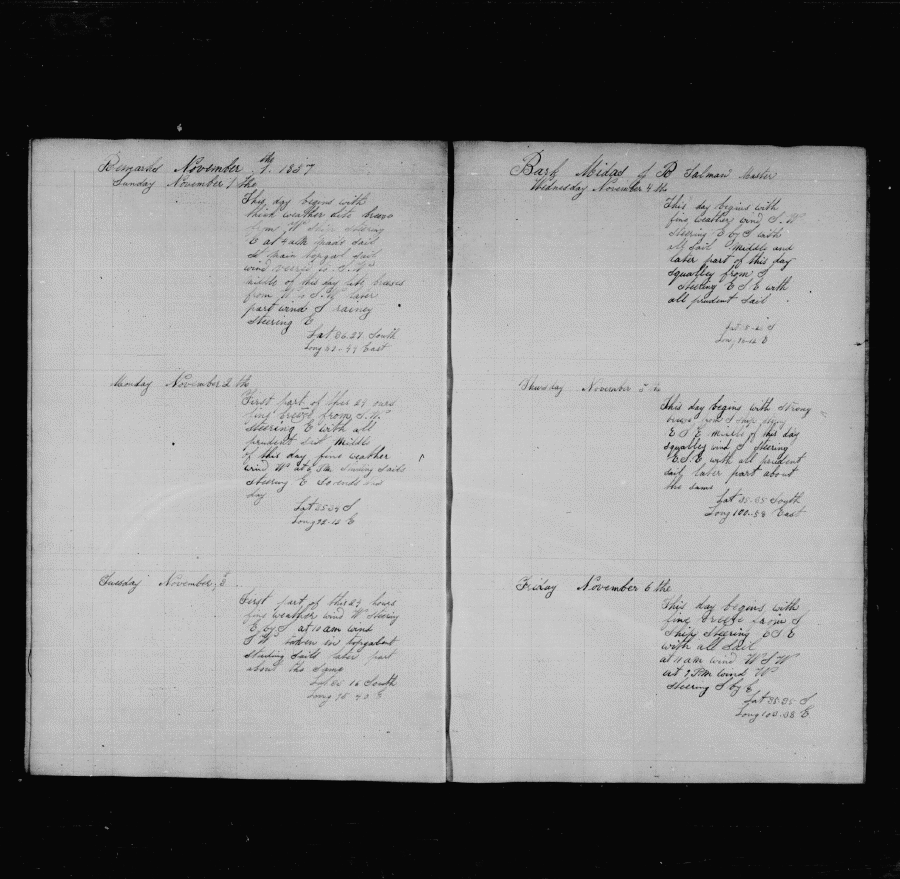 Remarks November the 1. 1857
Sunday November 1 the
This day begins with
thick weather lite breese
from W Ship Steering
E at 4 
wind 
middle of this day lite breeses
from W S W later
part wind S rainey
Steering E
Lat 36.27 South
Long East
Monday November 2 the
First part of this 24 ours
fine breeze from S.W
Steering E with all
prudent Sail Middle
of this day fine weather
wind W at 6 
Steering E So ends this
day
Lat 35.34 S
Long E
Tuesday November 3
First part of this 24 hours
fine weather wind W Steering
E by S at 10 am wind
S W taken in topgalant
Studing Sails later part
about the Same
Lat 35.16 South
Long 95.40 E
Bark Midas of B Talman Master
Wednesday November 4 the
This day begins with
fine weather wind S. W
Steering E by S with
all Sail Middle and
later part of this day
Squalley from S
Steering E S E with
all prudent Sail
Lat S
Long E
Thursday November 5 the
This day begins with Strong
breeze from S Ship Steering
E S E middle of this day
Squalley wind S Steering
E.S.E with all prudent
Sail later part about
the same
Lat 35.35 South
Long 100..58 East
Friday November 6 the
This day begins with
fine breeze from S
Ship Steering E S E
with all Sail
at 11 am wind W S W
at 2 PM wind W
Steering S by E
Lat 35.35 S
Long 104..38 E